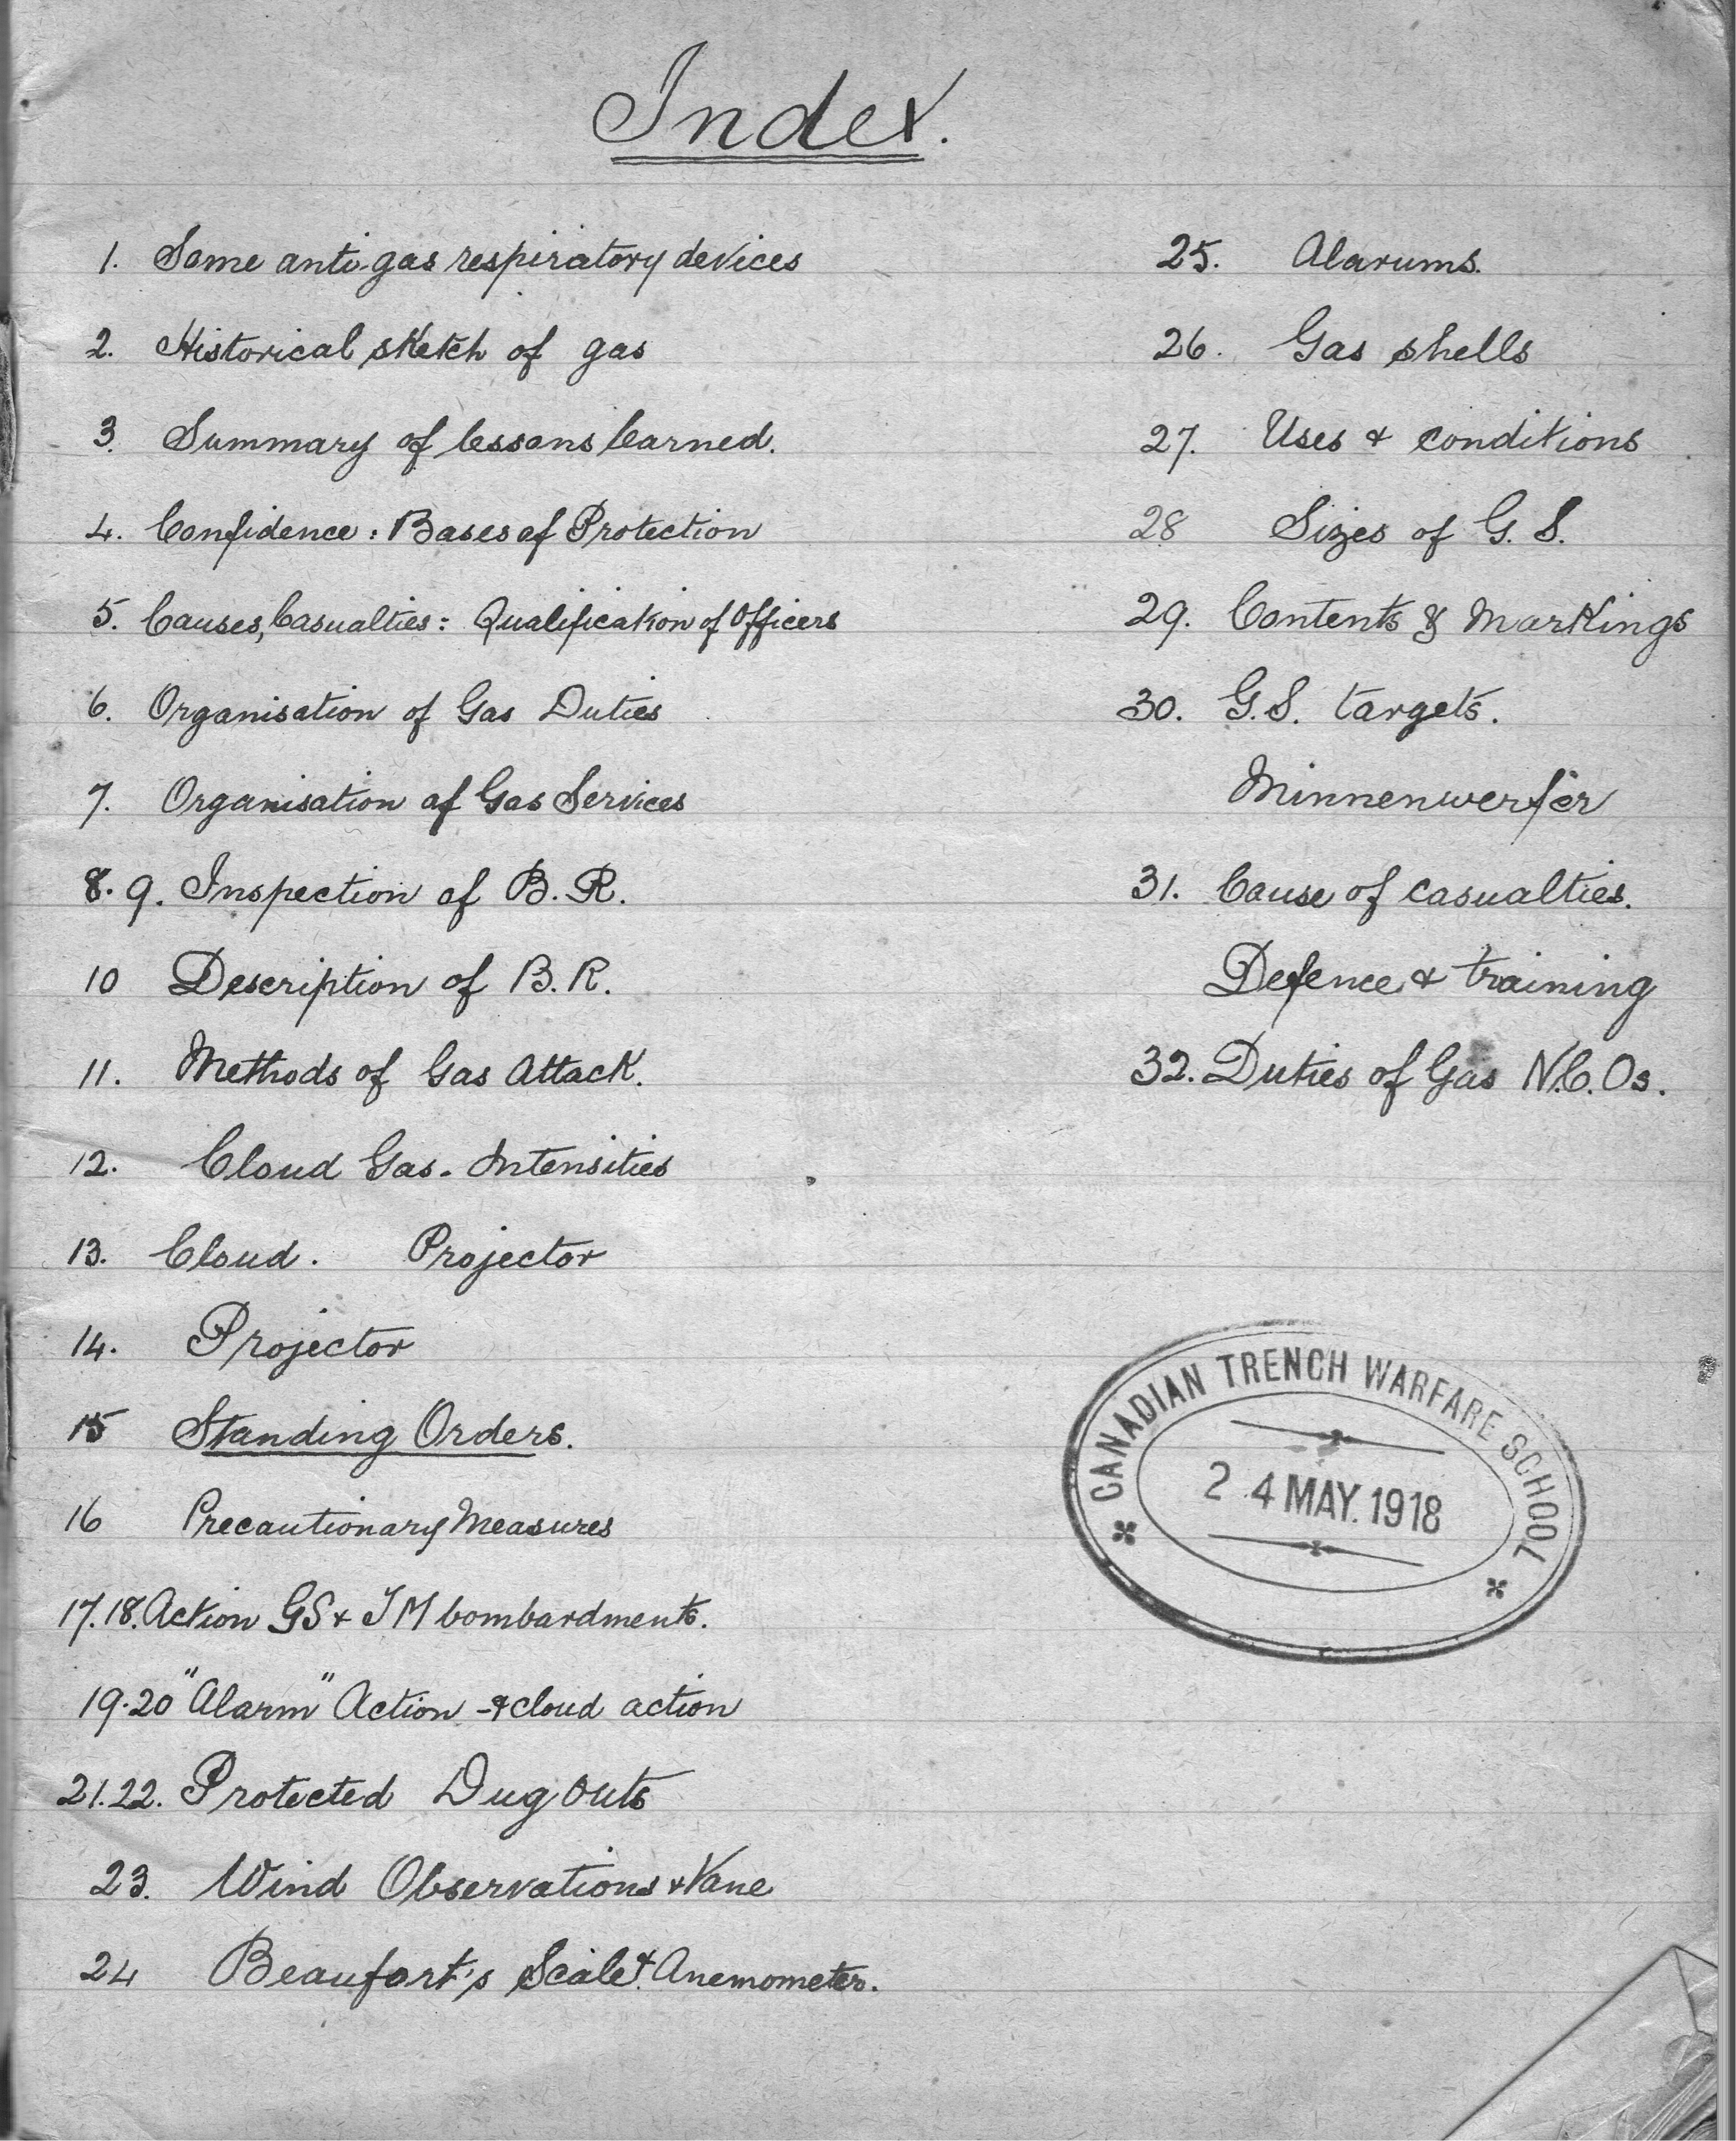 Index.
1. Some anti-gas respiratory devices
2. Historical sketch of gas
3. Summary of lessons learned.
4. Confidence : Bases of Protection
5. Causes, Casualties : Qualification of Officers
6. Organisation of Gas Duties
7. Organisation of Gas Services
8. 9. Inspection of B. R.
10 Description of B. R.
11. Methods of Gas Attack.
12. Cloud Gas - Intensities
13. Cloud. Projector
14. Projector
15 Standing Orders.
16 Precautionary Measures
17. 18. Action GS & TM bombardments.
19. 20 "Alarm" Action - & cloud action
21. 22. Protected Dug Outs
23. Wind Observations & Vane
24 Beaufort's Scale & Anemometer.
25. Alarums.
26. Gas shells
27. Uses & conditions
28 Sizes of G. S.
29. Contents & Markings
30. G.S. targets.
Minnenwerfer
31. Cause of casualties.
Defence & training
32. Duties of Gas N.C.Os.
CANADIAN TRENCH WARFARE SCHOOL
24 MAY. 1918